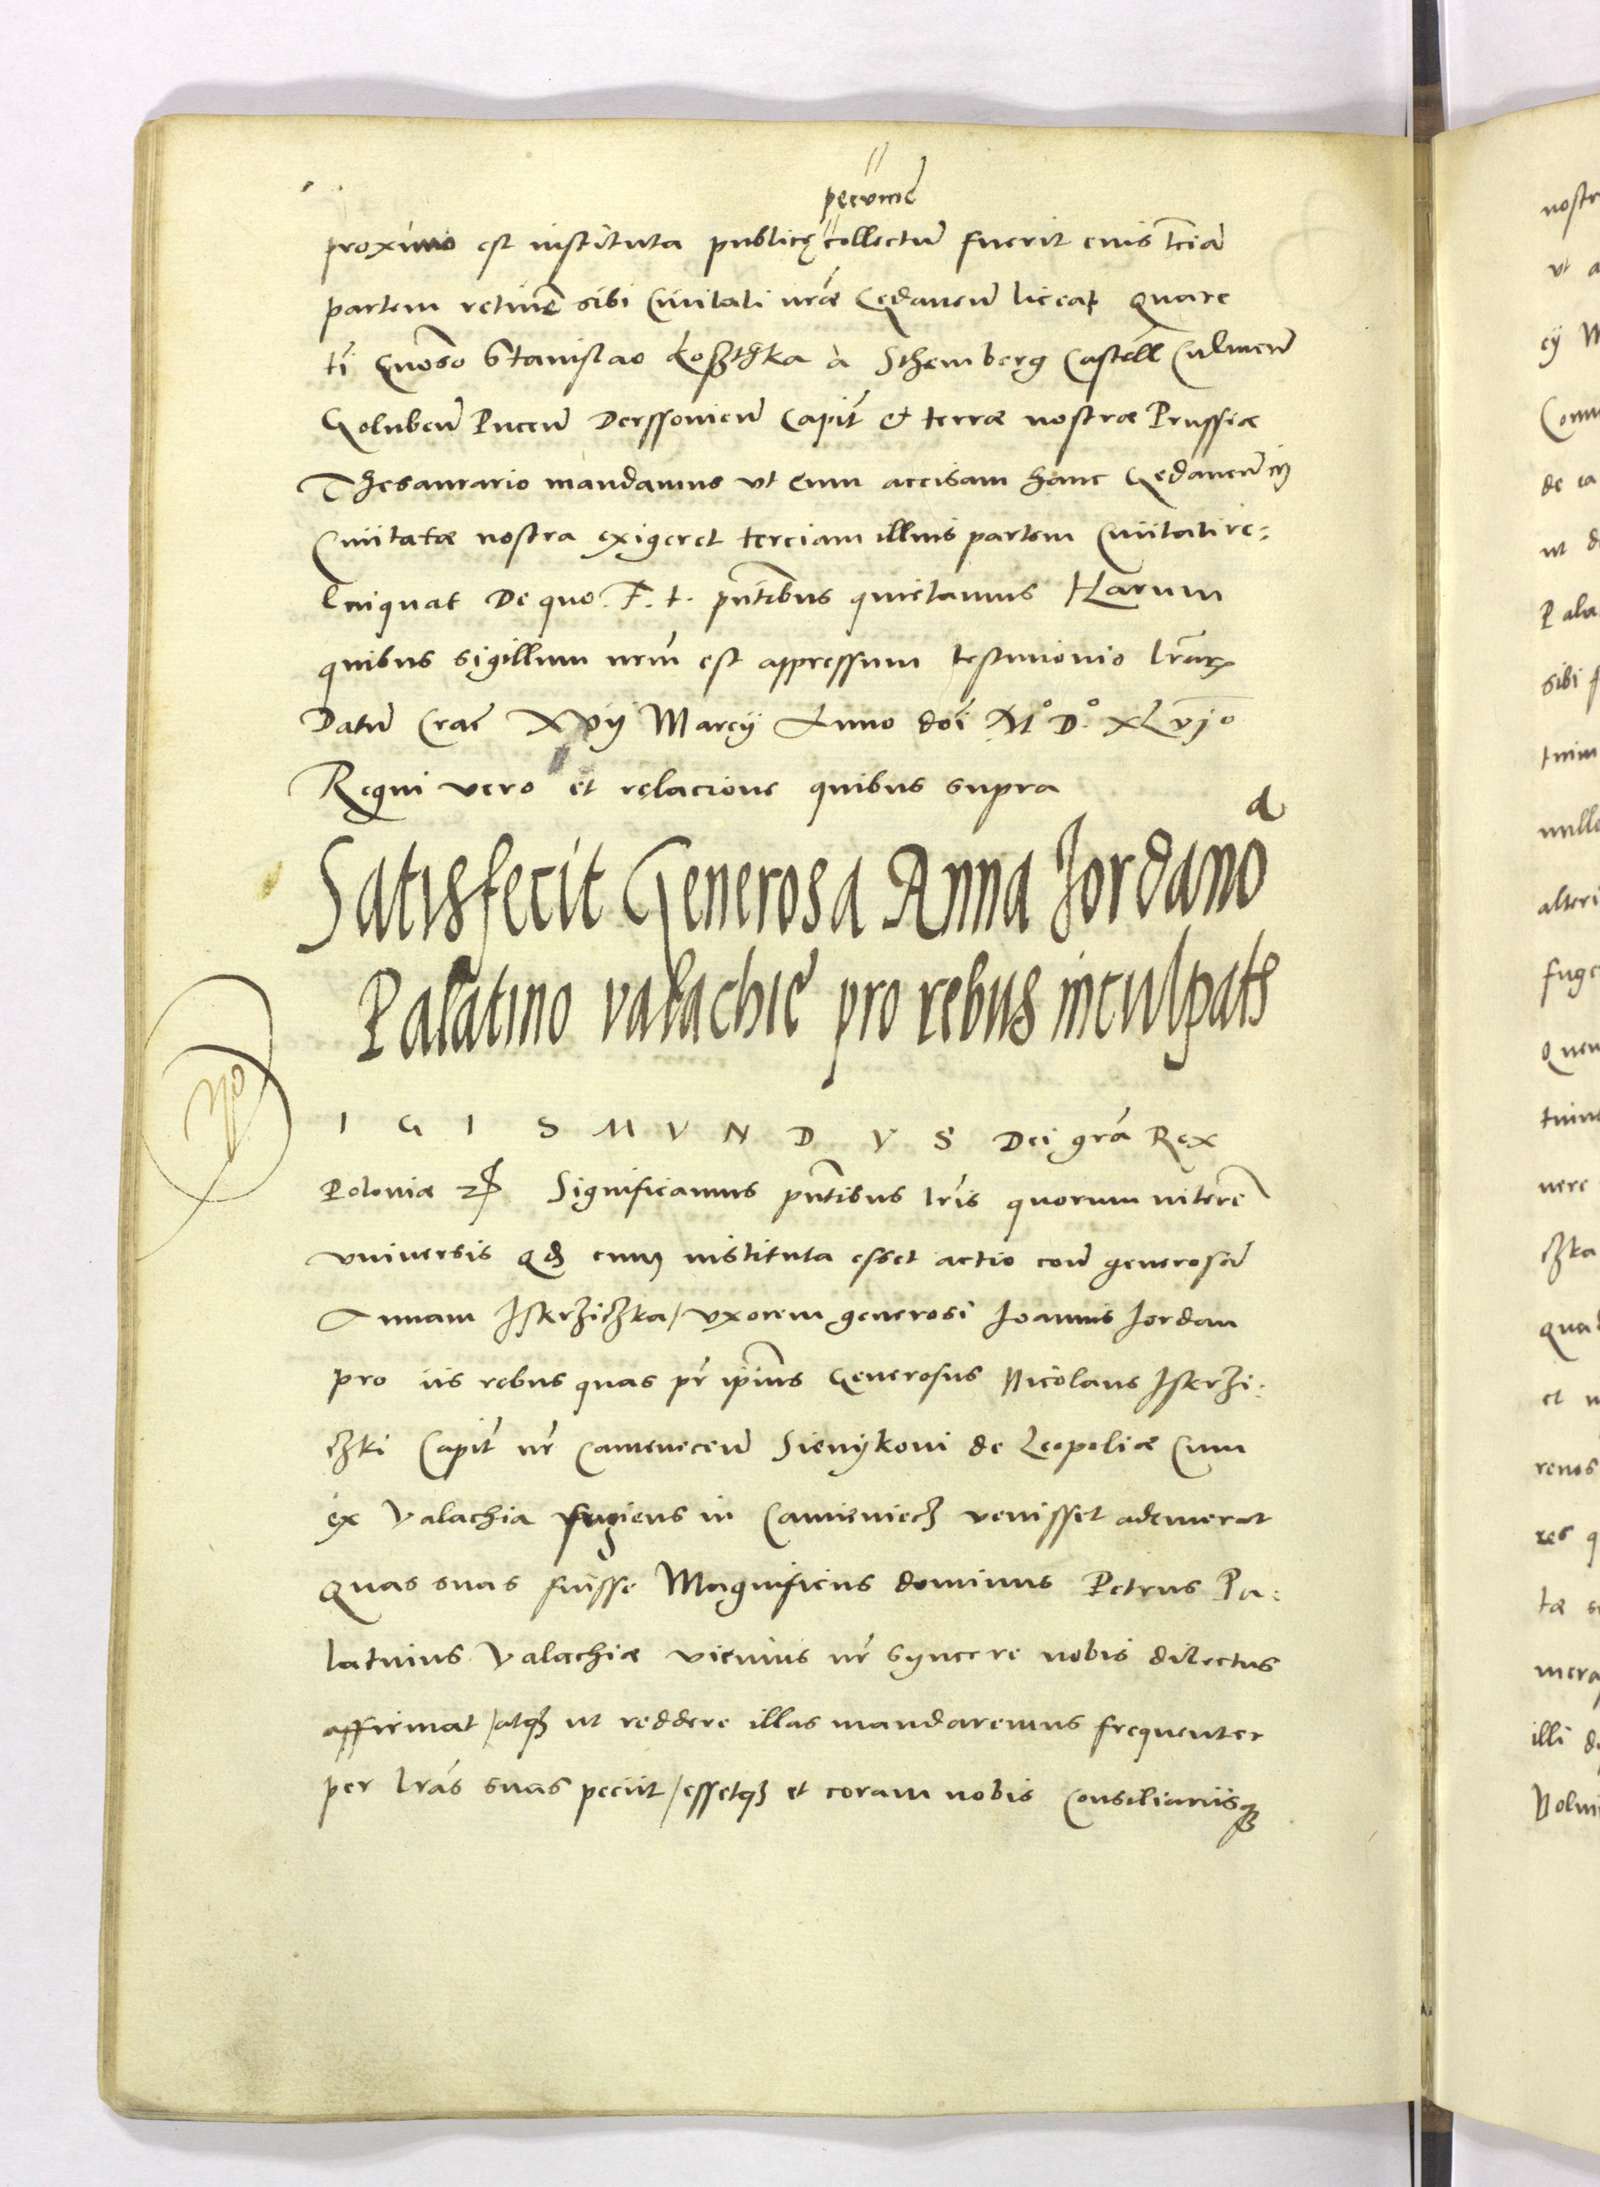 pecuniē
proximo est instituta publicę collectum̄ fuerit euis tc̄iā
partem retinē sibi Ciuitati nr̄ae Gedaneñ liceat Quare
tī Gnōso Stanislao Kosthka à Sthemberg Castell̄ Culmeñ
Golubeñ Puceñ Derssovieñ Capit̄ & terræ nostræ Prussiæ
Thesaurario mandamus vt cum accisam hanc Gedaneñ in
Ciuitatæ nostra exigeret terciam illius partem Ciuitati re:
linquat De quo F. t. pn̄tibus quietamus Harum
quibus sigillum nrm̄ est appressum testimonio lr̄ar
Datum̄ Crac̄ XVij Marcij Anno doī M° D° XLvjo
Regni vero et relacione quibus supra
Satisfecit Generosa Anna Jordanoūa
Palatino valachiē pro rebus inculpats
I G I S M V N D V S Dei grā Rex
Poloniæ Significamus pn̄tibus lr̄is quorum niterēt
vniuersis qd cum instituta esset actio con̄ generosā
Annam Iskrziczka / vxorem generosi Ioannis Jordan
pro iis rebus quas pr̄ ipius̄ Generosus Nicolaus Iskrzi:
czki Capit̄ nr̄ Cameneceñ Sienykoni de Leopoliæ Cum
ex Valachia fugiens in Camieniecz venisset ademerat
quas suas fuisse Magnificus dominus Petrus Pa:
latinus Valachiæ vicinus nr̄ syncere nobis dilectus
affirmat / atq ut reddere illas mandaremus frequenter
per lr̄as suas peciit / essetq et coram nobis Consiliariisq